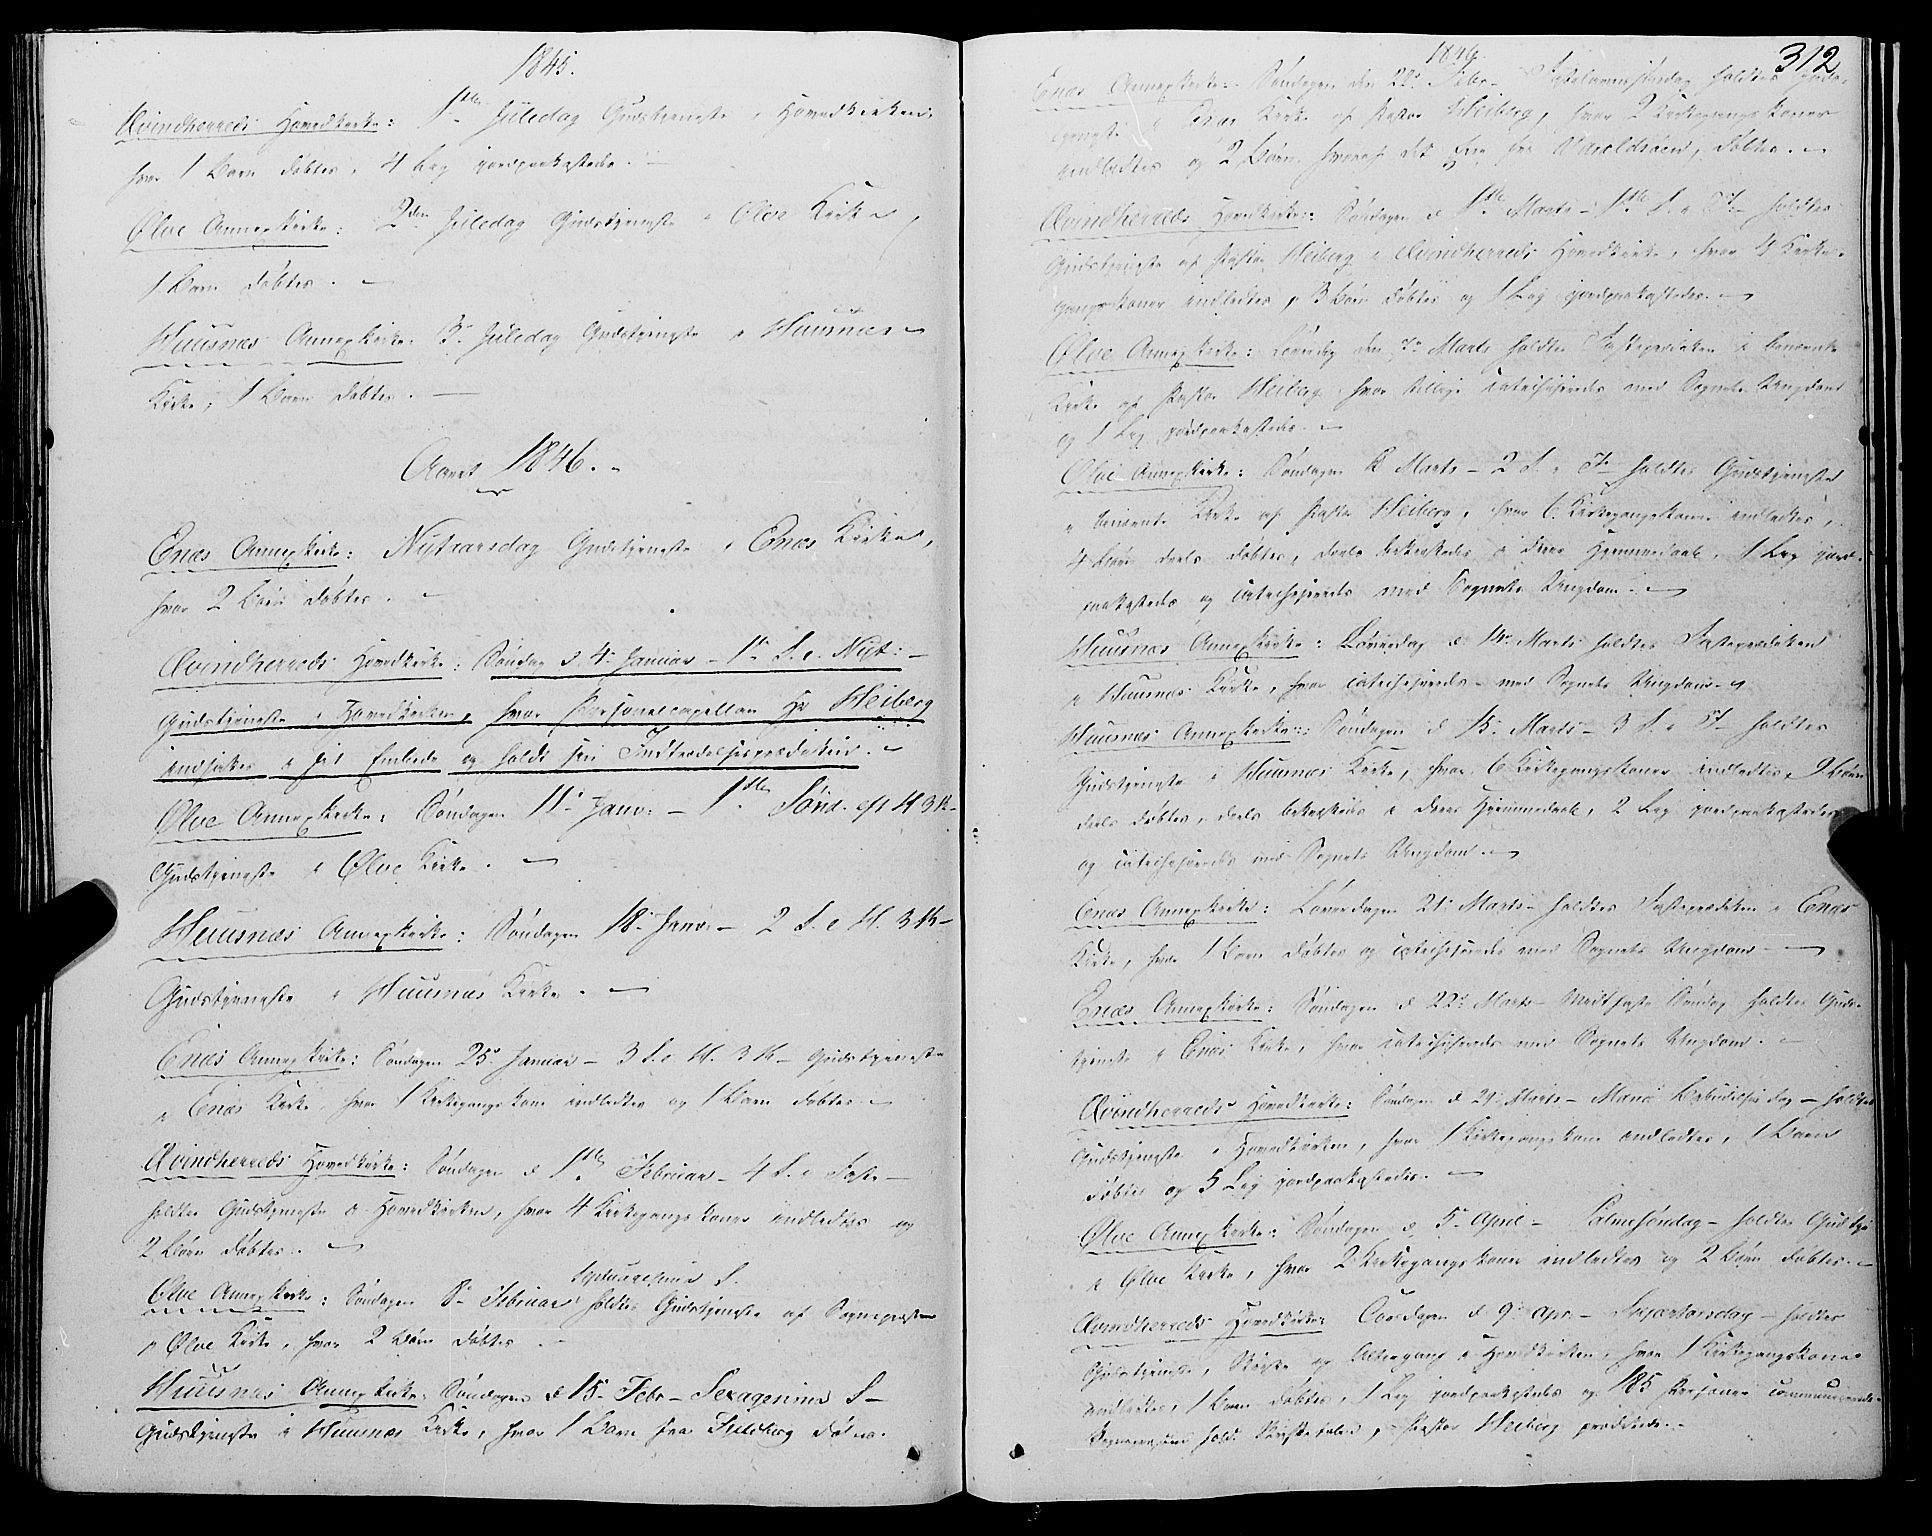 1845.
Qvindherreds Hovedkirke: 1ste Juledag Gudstjeneste i Hovedkirken,
hvor 1 Barn døbtes, 4 Lig jordpaakastede.
Ølve Annexkirke: 2den Juledag Gudstjeneste i Ølve Kirke,
1 Barn døbtes.
Huusnæs Annexkirke: 3die Juledag Gudstjeneste i Huusnæs
Kirke, 1 Barn døbtes.
Aaret 1846.
Enæs Annexkirke: Nytaarsdag Gudstjeneste i Enæs Kirke,
hvor 2 Børn døbtes.
Qvindherreds Hovedkirke: Søndag d 4de Januar – 1ste S. e. Nyt: –
Gudstjeneste i Hovedkirken, hvor Personelcapellan Hr Heiberg
indsattes i sit Embede og holdt sin Indtrædelsesprædiken.
Ølve Annexkirke: Søndagen 11te Janv: – 1ste Sønd. eft H 3 K –
Gudstjeneste i Ølve Kirke.
Huusnæs Annexkirke: Søndagen 18de Janv: – 2 S. e H. 3 K –
Gudstjeneste i Huusnæs Kirke.
Enæs Annexkirke: Søndagen 25de Januar – 3 S. e H. 3 K – Gudstjeneste
i Enæs Kirke, hvor 1 Kirkegangskone indledtes og 1 Barn døbtes.
Qvindherreds Hovedkirke: Søndagen d 1ste Februar – 4 S. e
holdtes Gudstjeneste i Hovedkirken, hvor 4 Kirkegangskoner indledtes og
2 Børn døbtes.
Septuagesima S.
Ølve Annexkirke: Søndagen 8de Februar holdtes Gudstjeneste af Sognepræsten
i Ølve Kirke, hvor 2 Børn døbtes.
Huusnæs Annexkirke: Søndagen d 15de Febr – Sexagesima S –
Gudstjeneste i Huusnæs Kirke, hvor 1 Barn fra døbtes.
1846.
312
Enæs Annexkirke: Søndagen den 22de Febr – Fastelavnssøndag holdtes Guds-
tjeneste i Enæs Kirke af Pastor Heiberg, hvor 2 Kirkegangskoner
indledtes og 2 Børn, hvoraf det Ene fra Varaldsøen, døbtes.
Qvindherreds Hovedkirke: Søndagen d 1ste Marts – 1ste S. i F. – holdtes
Gudstjeneste af Pastor Heiberg i Qvindherreds Hovedkirke, hvor 4 Kirke-
gangskoner indledtes, 3 Børn døbtes og 1 Lig jordpaakastedes.
Ølve Annexkirke: Løverdag den 7de Marts holdtes Fasteprædiken i benævnte
Kirke af Pastor Heiberg, hvor tillige catechiseredes med Sognets Ungdom
og 1 Lig jordpaakastedes.
Ølve Annexkirke: Søndagen 8 Marts – 2 S. i F. holdtes Gudstjeneste
i benævnte Kirke af Pastor Heiberg, hvor 6 Kirkegangskoner indledtes,
4 Børn deels døbtes, deels bekræftedes i deres Hjemmedaab, 1 Lig jord-
paakastedes og catechiseredes med Sognets Ungdom.
Huusnæs Annexkirke: Løverdag d 14de Marts holdtes Fasteprædiken
i Huusnæs Kirke, hvor catechiseredes med Sognets Ungdom.
Huusnæs Annexkirke: Søndagen d 15de Marts – 3 S. i F. holdtes
Gudstjeneste i Huusnæs Kirke, hvor 6 Kirkegangskoner indledtes, 9 Børn
deels døbtes, deels bekræftedes i deres Hjemmedaab, 2 Lig jordpaakastedes
og catechiseredes med Sognets Ungdom.
Enæs Annexkirke: Løverdagen 21de Marts – holdtes Fasteprædiken i Enæs
Kirke, hvor 1 Barn døbtes og catechiseredes med Sognets Ungdom.
Enæs Annexkirke: Søndagen d 22de Marts – Midtfaste Søndag holdtes Guds-
tjeneste i Enæs Kirke, hvor catechiseredes med Sognets Ungdom.
Qvindherreds Hovedkirke: Søndagen d 29de Marts – Mariæ Bebudelses Dag – holdtes
Gudstjeneste i Hovedkirken, hvor 1 Kirkegangskone indledtes, 1 Barn
døbtes og 5 Lig jordpaakastedes.
Ølve Annexkirke: Søndagen d 5te April – Palmesøndag – holdtes Gudstje
i Ølve Kirke, hvor 2 Kirkegangskoner indledtes og 2 Børn døbtes.
Qvindherreds Hovedkirke: Torsdagen d 9de Apr. – Skjærtorsdag – holdtes
Gudstjeneste, Skrifte og Altergang i Hovedkirken, hvor 1 Kirkegangskone
indledtes, 1 Barn døbtes, 1 Lig jordpaakastedes og 185 Personer communicerede.
Sognepræsten holdt Skriftetalen, Pastor Heiberg prædikede.